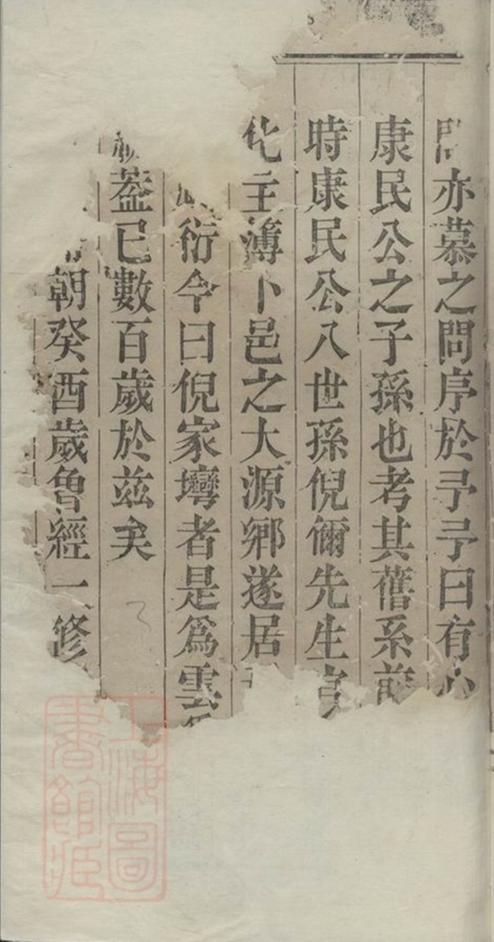 亦慕之問序於予予曰有心
康民公之子孫也考其舊系
時康民公八世孫倪俑先生
化主簿卜邑之大源鄉遂居
衍今曰倪家塆者是爲雲
蓋已數百歲於茲矣
朝癸酉歲魯經一修
上海圖書館藏